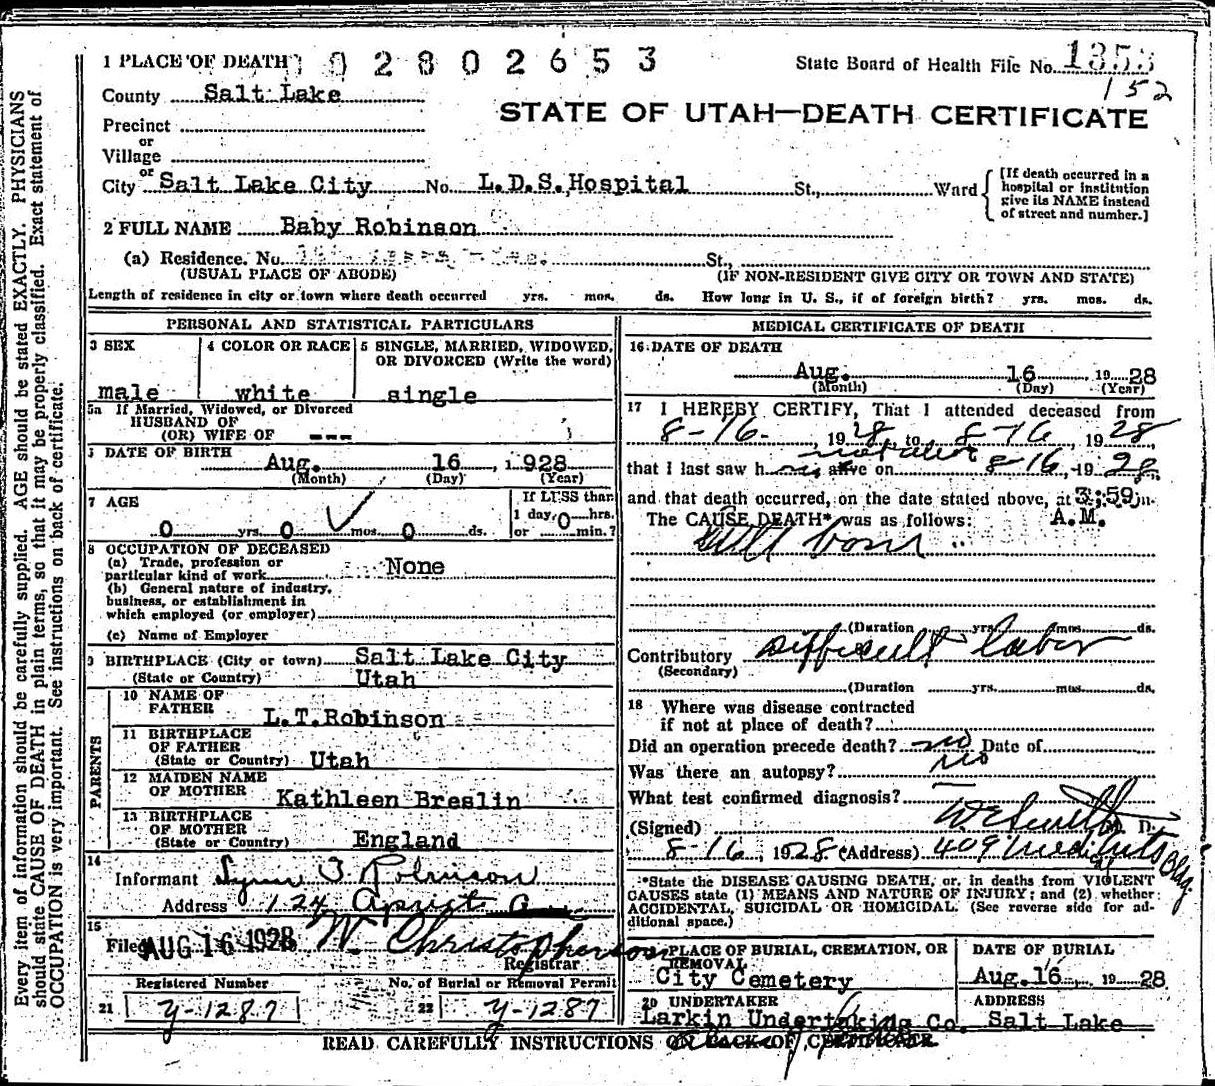 1 PLACE OF DEATH 0 2 8 0 2 6 5 3
State Board of Health File No. 1353
152
County Salt Lake
STATE OF UTAH—DEATH CERTIFICATE
Precinct
or
Village
or
City Salt Lake City No. L.D.S. Hospital St., Ward
[If death occurred in a hospital or institution give its NAME instead of street and number.]
2 FULL NAME Baby Robinson
(a) Residence. No. St.,
(USUAL PLACE OF ABODE) (IF NON-RESIDENT GIVE CITY OR TOWN AND STATE)
Length of residence in city or town where death occurred yrs. mos. ds. How long in U. S., if of foreign birth? yrs. mos. ds.
PERSONAL AND STATISTICAL PARTICULARS
3 SEX
male
4 COLOR OR RACE
white
5 SINGLE, MARRIED, WIDOWED, OR DIVORCED (Write the word)
single
5a If Married, Widowed, or Divorced
HUSBAND OF
(OR) WIFE OF ---
DATE OF BIRTH Aug. 16, 1928
(Month) (Day) (Year)
7 AGE
0 yrs. 0 mos. 0 ds.
If LESS than
1 day, 0 hrs.
or min.?
8 OCCUPATION OF DECEASED
(a) Trade, profession or
particular kind of work None
(b) General nature of industry,
business, or establishment in
which employed (or employer)
(c) Name of Employer
9 BIRTHPLACE (City or town) Salt Lake City
(State or Country) Utah
PARENTS
10 NAME OF
FATHER L.T.Robinson
11 BIRTHPLACE
OF FATHER
(State or Country) Utah
12 MAIDEN NAME
OF MOTHER Kathleen Breslin
13 BIRTHPLACE
OF MOTHER
(State or Country) England
14
Informant Lynn T. Robinson
Address 124
15
Filed AUG 16 1928 W Christopherson
Registrar
Registered Number
21 Y-1287
No. of Burial or Removal Permit
22 Y-1287
MEDICAL CERTIFICATE OF DEATH
16 DATE OF DEATH
Aug. 16, 1928
(Month) (Day) (Year)
17 I HEREBY CERTIFY, That I attended deceased from
8-16-, 1928, to 8-16, 1928,
not alive
that I last saw h alive on 8-16, 1928,
and that death occurred, on the date stated above, at 3:59 m.
The CAUSE DEATH* was as follows: A.M.
Still born
(Duration yrs. mos. ds.
Contributory difficult labor
(Secondary)
(Duration yrs. mos. ds.
18 Where was disease contracted
if not at place of death?
Did an operation precede death? no Date of
Was there an autopsy? no
What test confirmed diagnosis? —
(Signed) M. D.
8-16, 1928 (Address) 409 Medical Arts Bldg.
*State the DISEASE CAUSING DEATH, or, in deaths from VIOLENT
CAUSES state (1) MEANS AND NATURE OF INJURY; and (2) whether
ACCIDENTAL, SUICIDAL OR HOMICIDAL. (See reverse side for additional space.)
PLACE OF BURIAL, CREMATION, OR
REMOVAL
City Cemetery
DATE OF BURIAL
Aug. 16, 1928
20 UNDERTAKER
Larkin Undertaking Co.
ADDRESS
Salt Lake
READ CAREFULLY INSTRUCTIONS ON BACK OF CERTIFICATE
Every item of information should be carefully supplied. AGE should be stated EXACTLY. PHYSICIANS
should state CAUSE OF DEATH in plain terms, so that it may be properly classified. Exact statement of
OCCUPATION is very important. See instructions on back of certificate.